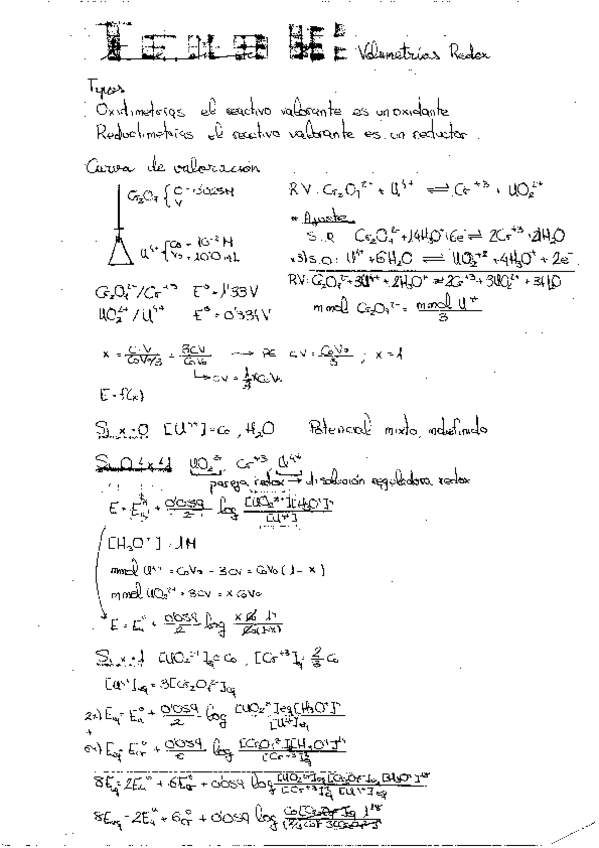 Tema III: Volumetrías Redox
Tipos
Oxidimetrías el reactivo valorante es un oxidante
Reductimetrías el reactivo valorante es un reductor
Curva de valoración
R.V: Cr2O7^2- + U^4+ ⇌ Cr^+3 + UO2^2+
* Ajuste
S.R Cr2O7^2- + 14H3O^+ + 6e^- ⇌ 2Cr^+3 + 21H2O
x3) S.O: U^4+ + 6H2O ⇌ UO2^+2 + 4H3O^+ + 2e^-
RV: Cr2O7^2- + 3U^4+ + 2H3O^+ ⇌ 2Cr^+3 + 3UO2^2+ + 3H2O
Cr2O7^2-/Cr^+3 E° = 1'33V
UO2^2+/U^4+ E° = 0'334V
mmol Cr2O7^2- = mmol U^4+ / 3
x = C·V / (CoVo/3) = 3CV / CoVo → PE CV = CoVo / 3 ; x = 1
↳ CV = 1/3 x CoVo
E = f(x)
Si x = 0 [U^4+] = Co, H2O Potencial mixto, indefinido
Si 0<x<1 UO2^2+, Cr^+3 U^4+
pareja redox → disolución reguladora redox
E = E°u + 0'059/2 log [UO2^2+][H3O^+]^4 / [U^4+]
[H3O^+] = 1M
mmol U^4+ = CoVo - 3CV = CoVo (1 - x)
mmol UO2^2+ = 3CV = x CoVo
E = E°u + 0'059/2 log
Si x = 1 [UO2^2+]eq = Co, [Cr^+3]eq = 2/3 Co
[U^4+]eq = 3[Cr2O7^2-]eq
2x) Eeq = E°u + 0'059/2 log [UO2^2+]eq [H3O^+]^4 / [U^4+]eq
+
6x) Eeq = E°Cr + 0'059/6 log [Cr2O7^2-][H3O^+]^14 / [Cr^+3]^2
8Eeq = 2E°u + 6E°Cr + 0'059 log
8Eeq = 2E°u + 6E°Cr + 0'059 log